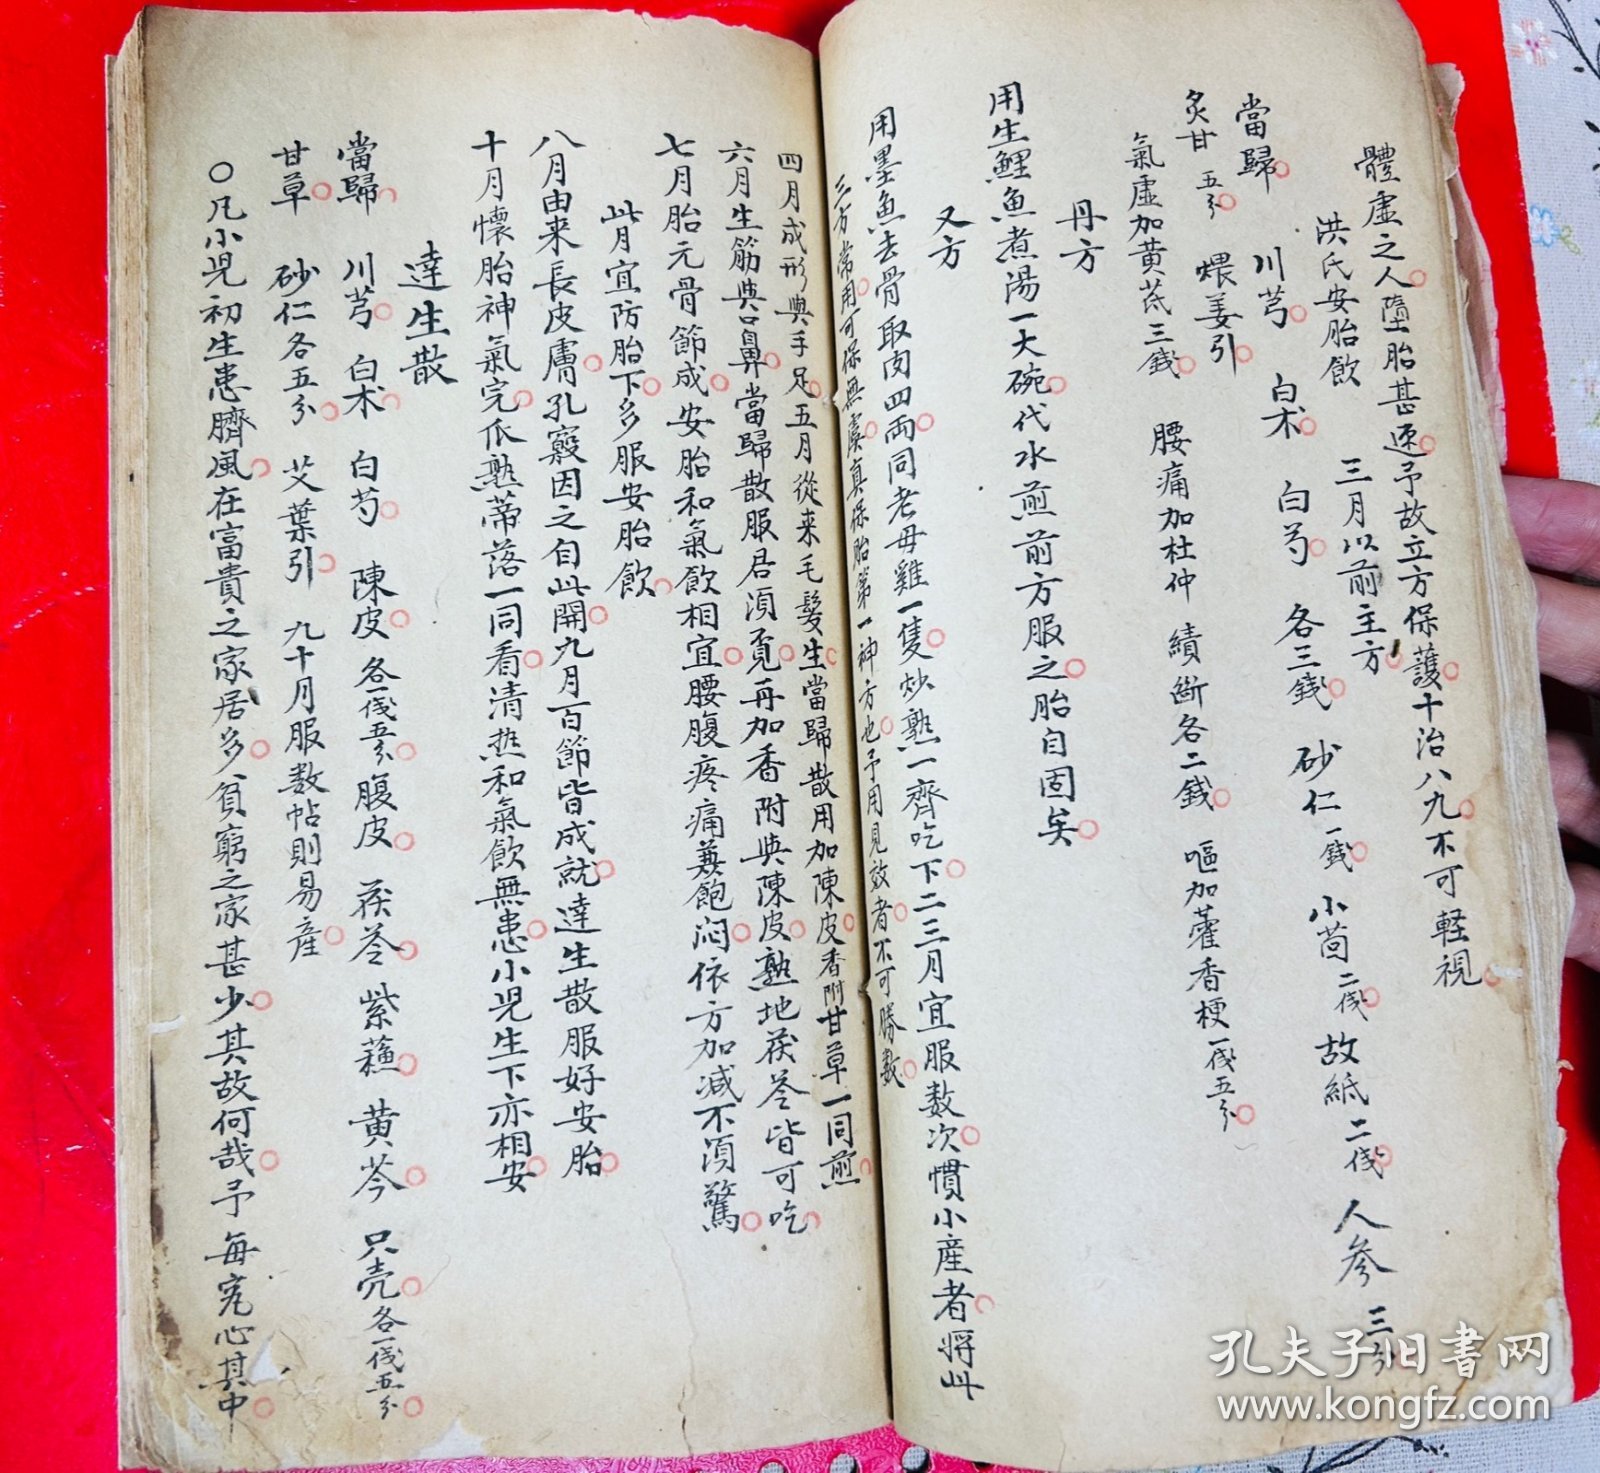 體虛之人墮胎甚速予故立方保護十治八九不可輕視
洪氏安胎飲　三月以前主方
當歸　川芎　白朮　白芍　各三錢　砂仁一錢　小茴二伐　故紙二伐　人參三分
炙甘五分　煨姜引
氣虛加黃茋三錢　腰痛加杜仲　續斷各二錢　嘔加藿香梗一伐五分
丹方
用生鯉魚煮湯一大碗代水煎前方服之胎自固矣
又方
用墨魚去骨取肉四兩同老母雞一隻炒熟一齊吃下二三月宜服数次慣小產者將此
三方常用可保無虞真保胎第一神方也予用見效者不可勝數
四月成形與手足五月從来毛髮生當歸散用加陳皮香附甘草一同煎
六月生筋與口鼻當歸散服君須覓再加香附與陳皮熟地茯苓皆可吃
七月胎元骨節成安胎和氣飲相宜腰腹疼痛兼飽悶依方加減不須驚
此月宜防胎下多服安胎飲
八月由来長皮膚孔竅因之自此開九月百節皆成就達生散服好安胎
十月懷胎神氣完瓜熟蒂落一同看清热和氣飲無患小児生下亦相安
達生散
當歸　川芎　白朮　白芍　陳皮各一伐五分　腹皮　茯苓　紫蘓　黄芩　只壳各一伐五分
甘草　砂仁各五分　艾葉引　九十月服数帖則易産
○凡小児初生患臍風在富貴之家居多貧窮之家甚少其故何哉予每究心其中
孔夫子旧书网
www.kongfz.com